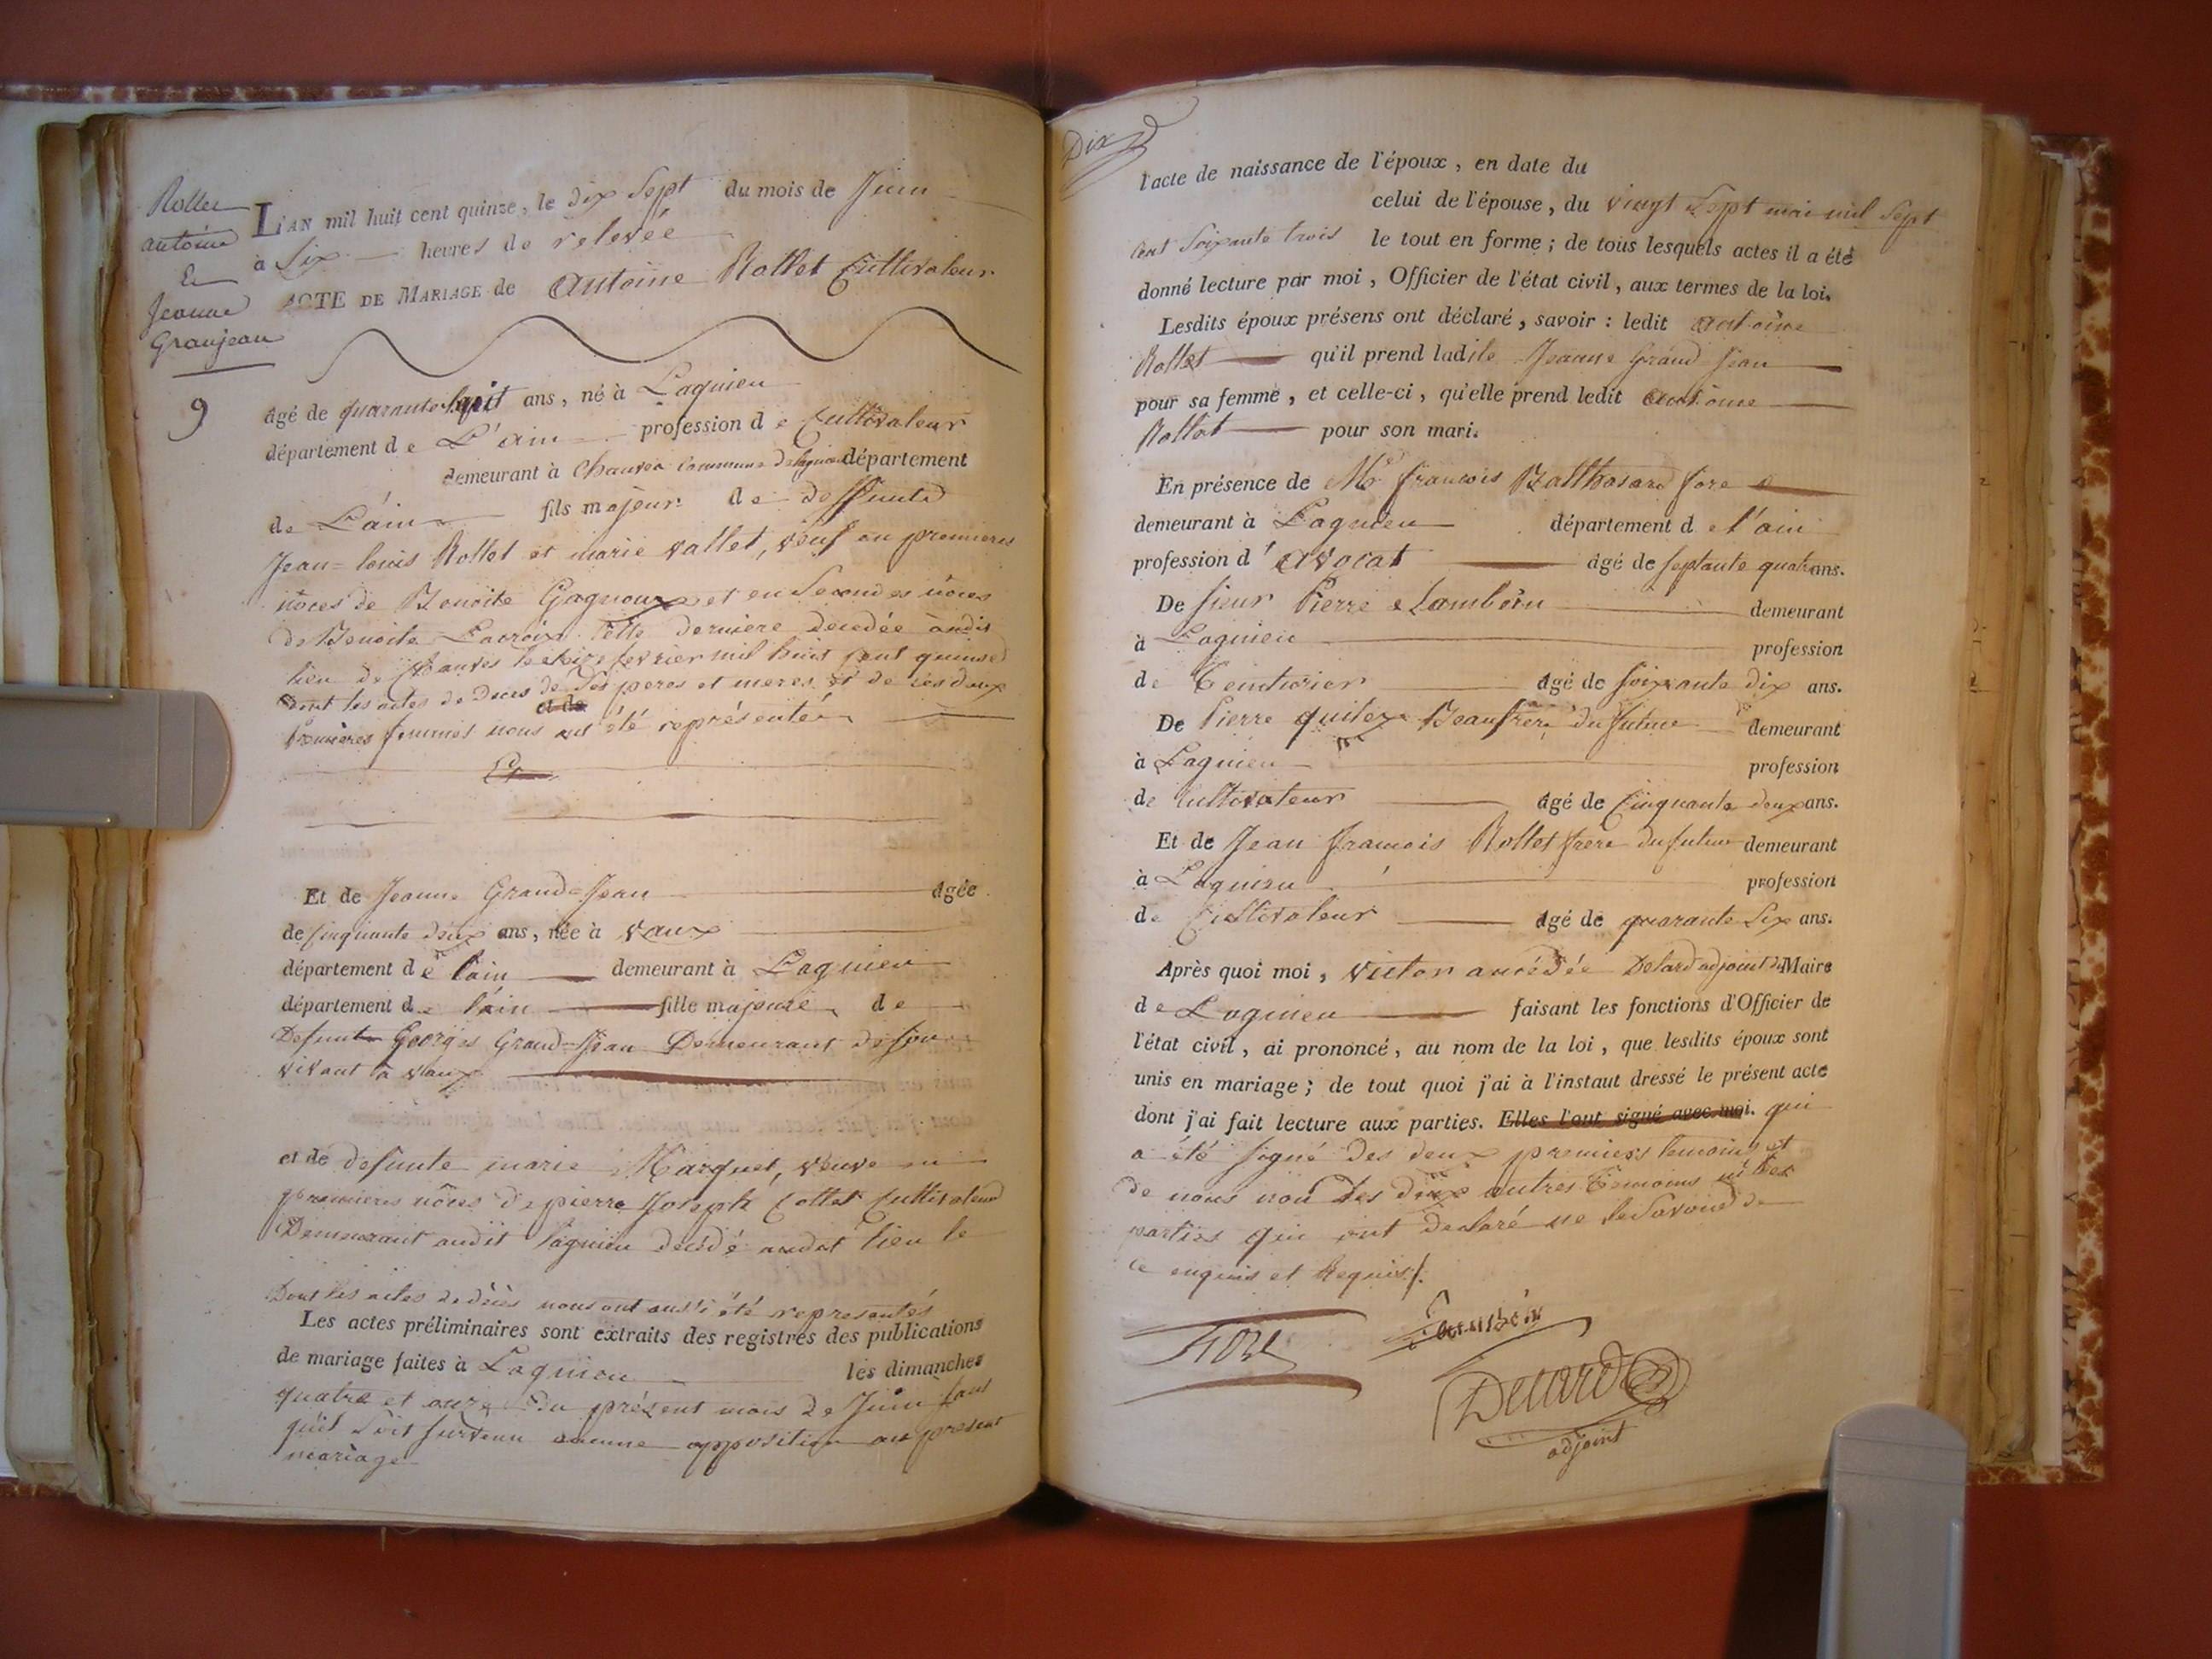 Rollet
antoine
&
Jeanne
Granjean
9
L'AN mil huit cent quinze, le dix Sept du mois de Juin
à Six heures de relevée
ACTE DE MARIAGE de Antoine Rollet Cultivateur
âgé de quarante huit ans, né à Lagnieu
département de L'ain profession de Cultivateur
demeurant à Chauves Commune de lagnieu département
de L'ain fils majeur de deffunts
Jean=louis Rollet et marie vallet, veuf en premieres
nôces de Benoite Gagnoux et en Secondes nôces
de Benoite Lacroix Cette derniere decedée audit
lieu de Chauves le seize fevrier mil huit cent quinze
dont les actes de Deces de Ses peres et meres et de ses deux
et de
premières femmes nous ont été représentés
Et
Et de Jeanne Grand=Jean âgée
de cinquante deux ans, née à Vaux
département de lain demeurant à Lagnieu
département de lain fille majeure de
Defunt Georges Grand=Jean Demeurant de son
vivant à Vaux
et de defunte marie Marquet, veuve en
premieres nôces de pierre Joseph Cottet Cultivateur
Demeurant audit lagnieu decédé audit lieu le
Dont les actes de décès nous ont aussi été representés
Les actes préliminaires sont extraits des registres des publications
de mariage faites à Lagnieu les dimanches
quatre et onze du présent mois de Juin sans
qu'il soit survenu aucune opposition au present
mariage
Dix
l'acte de naissance de l'époux, en date du
celui de l'épouse, du vingt Sept mai mil Sept
cent Soixante trois le tout en forme; de tous lesquels actes il a été
donné lecture par moi, Officier de l'état civil, aux termes de la loi.
Lesdits époux présens ont déclaré, savoir : ledit antoine
Rollet qu'il prend ladite Jeanne Grand Jean
pour sa femme, et celle-ci, qu'elle prend ledit antoine
Rollet pour son mari.
En présence de Mr francois Balthasard fore
demeurant à Lagnieu département de l'ain
profession d'avocat âgé de septante quatre ans.
De sieur Pierre Lambein demeurant
à Lagnieu profession
de Teinturier âgé de soixante dix ans.
De Pierre quitez Beaufrère du futur demeurant
à Lagnieu profession
de Cultivateur âgé de Cinquante deux ans.
Et de Jean francois Rollet frere du futur demeurant
à Lagnieu profession
de Cultivateur âgé de quarante Six ans.
Après quoi moi, Victor amédée Detard adjoint du Maire
de Lagnieu faisant les fonctions d'Officier de
l'état civil, ai prononcé, au nom de la loi, que lesdits époux sont
unis en mariage; de tout quoi j'ai à l'instant dressé le présent acte
dont j'ai fait lecture aux parties. Elles l'ont signé avec moi. qui
a été signé des deux premiers temoins et
de nous non des deux autres temoins ni des
parties qui ont declaré ne le savoir de
ce enquis et Requis/.
Fore
Lambein
Detard
adjoint